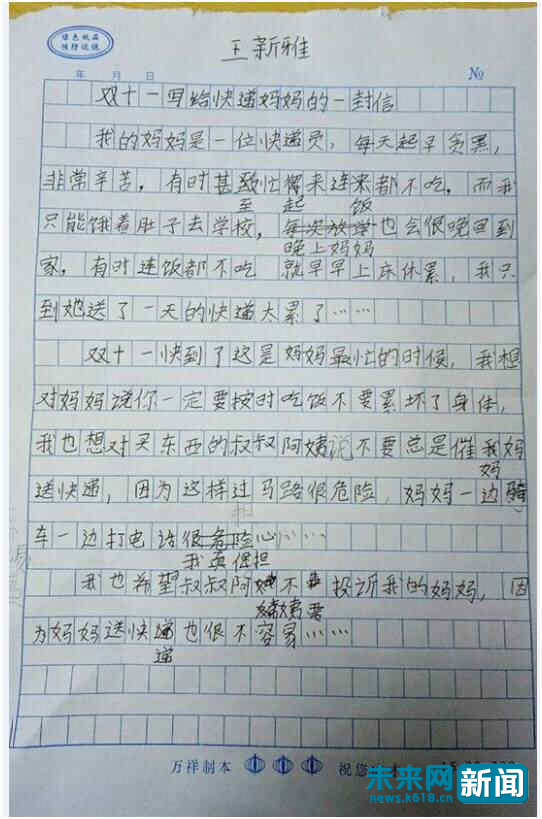 绿色纸品
预防近视
王新雅
年 月 日 №
双十一写给快递妈妈的一封信
我的妈妈是一位快递员,每天起早贪黑,
非常辛苦。有时甚致忙得来连来都不吃,而我
至 起 饭
只能饿着肚子去学校,每次放学也会很晚回到
晚上妈妈
家,有时连饭都不吃 就早早上床休累,我只
到她送了一天的快递大累了……
双十一快到了这是妈妈最忙的时候,我想
对妈妈说你一定要按时吃饭不要累坏了身体,
我也想对买东西的叔叔阿姨说不要总是催我妈
妈
送快递,因为这样过马路很危险,妈妈一边骑
车一边打电话很危险心……
我真但担
我也希望叔叔阿 不 投诉我的妈妈,因
姨 要
为妈妈送快递也很不容易……
递
万祥制本 祝您
未来网 新闻
news.k618.cn